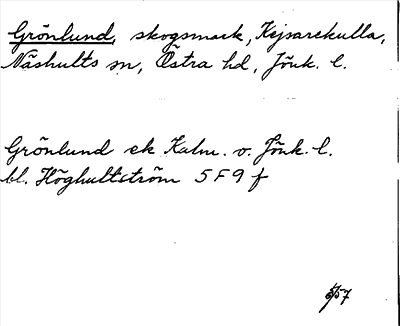 Grönlund, skogsmark, Kejsarekulla,
Näshults sn, Östra hd, Jönk. l.
Grönlund ek Kalm. v. Jönk. l.
bl. Höghultström 5 F 9 f
5/57